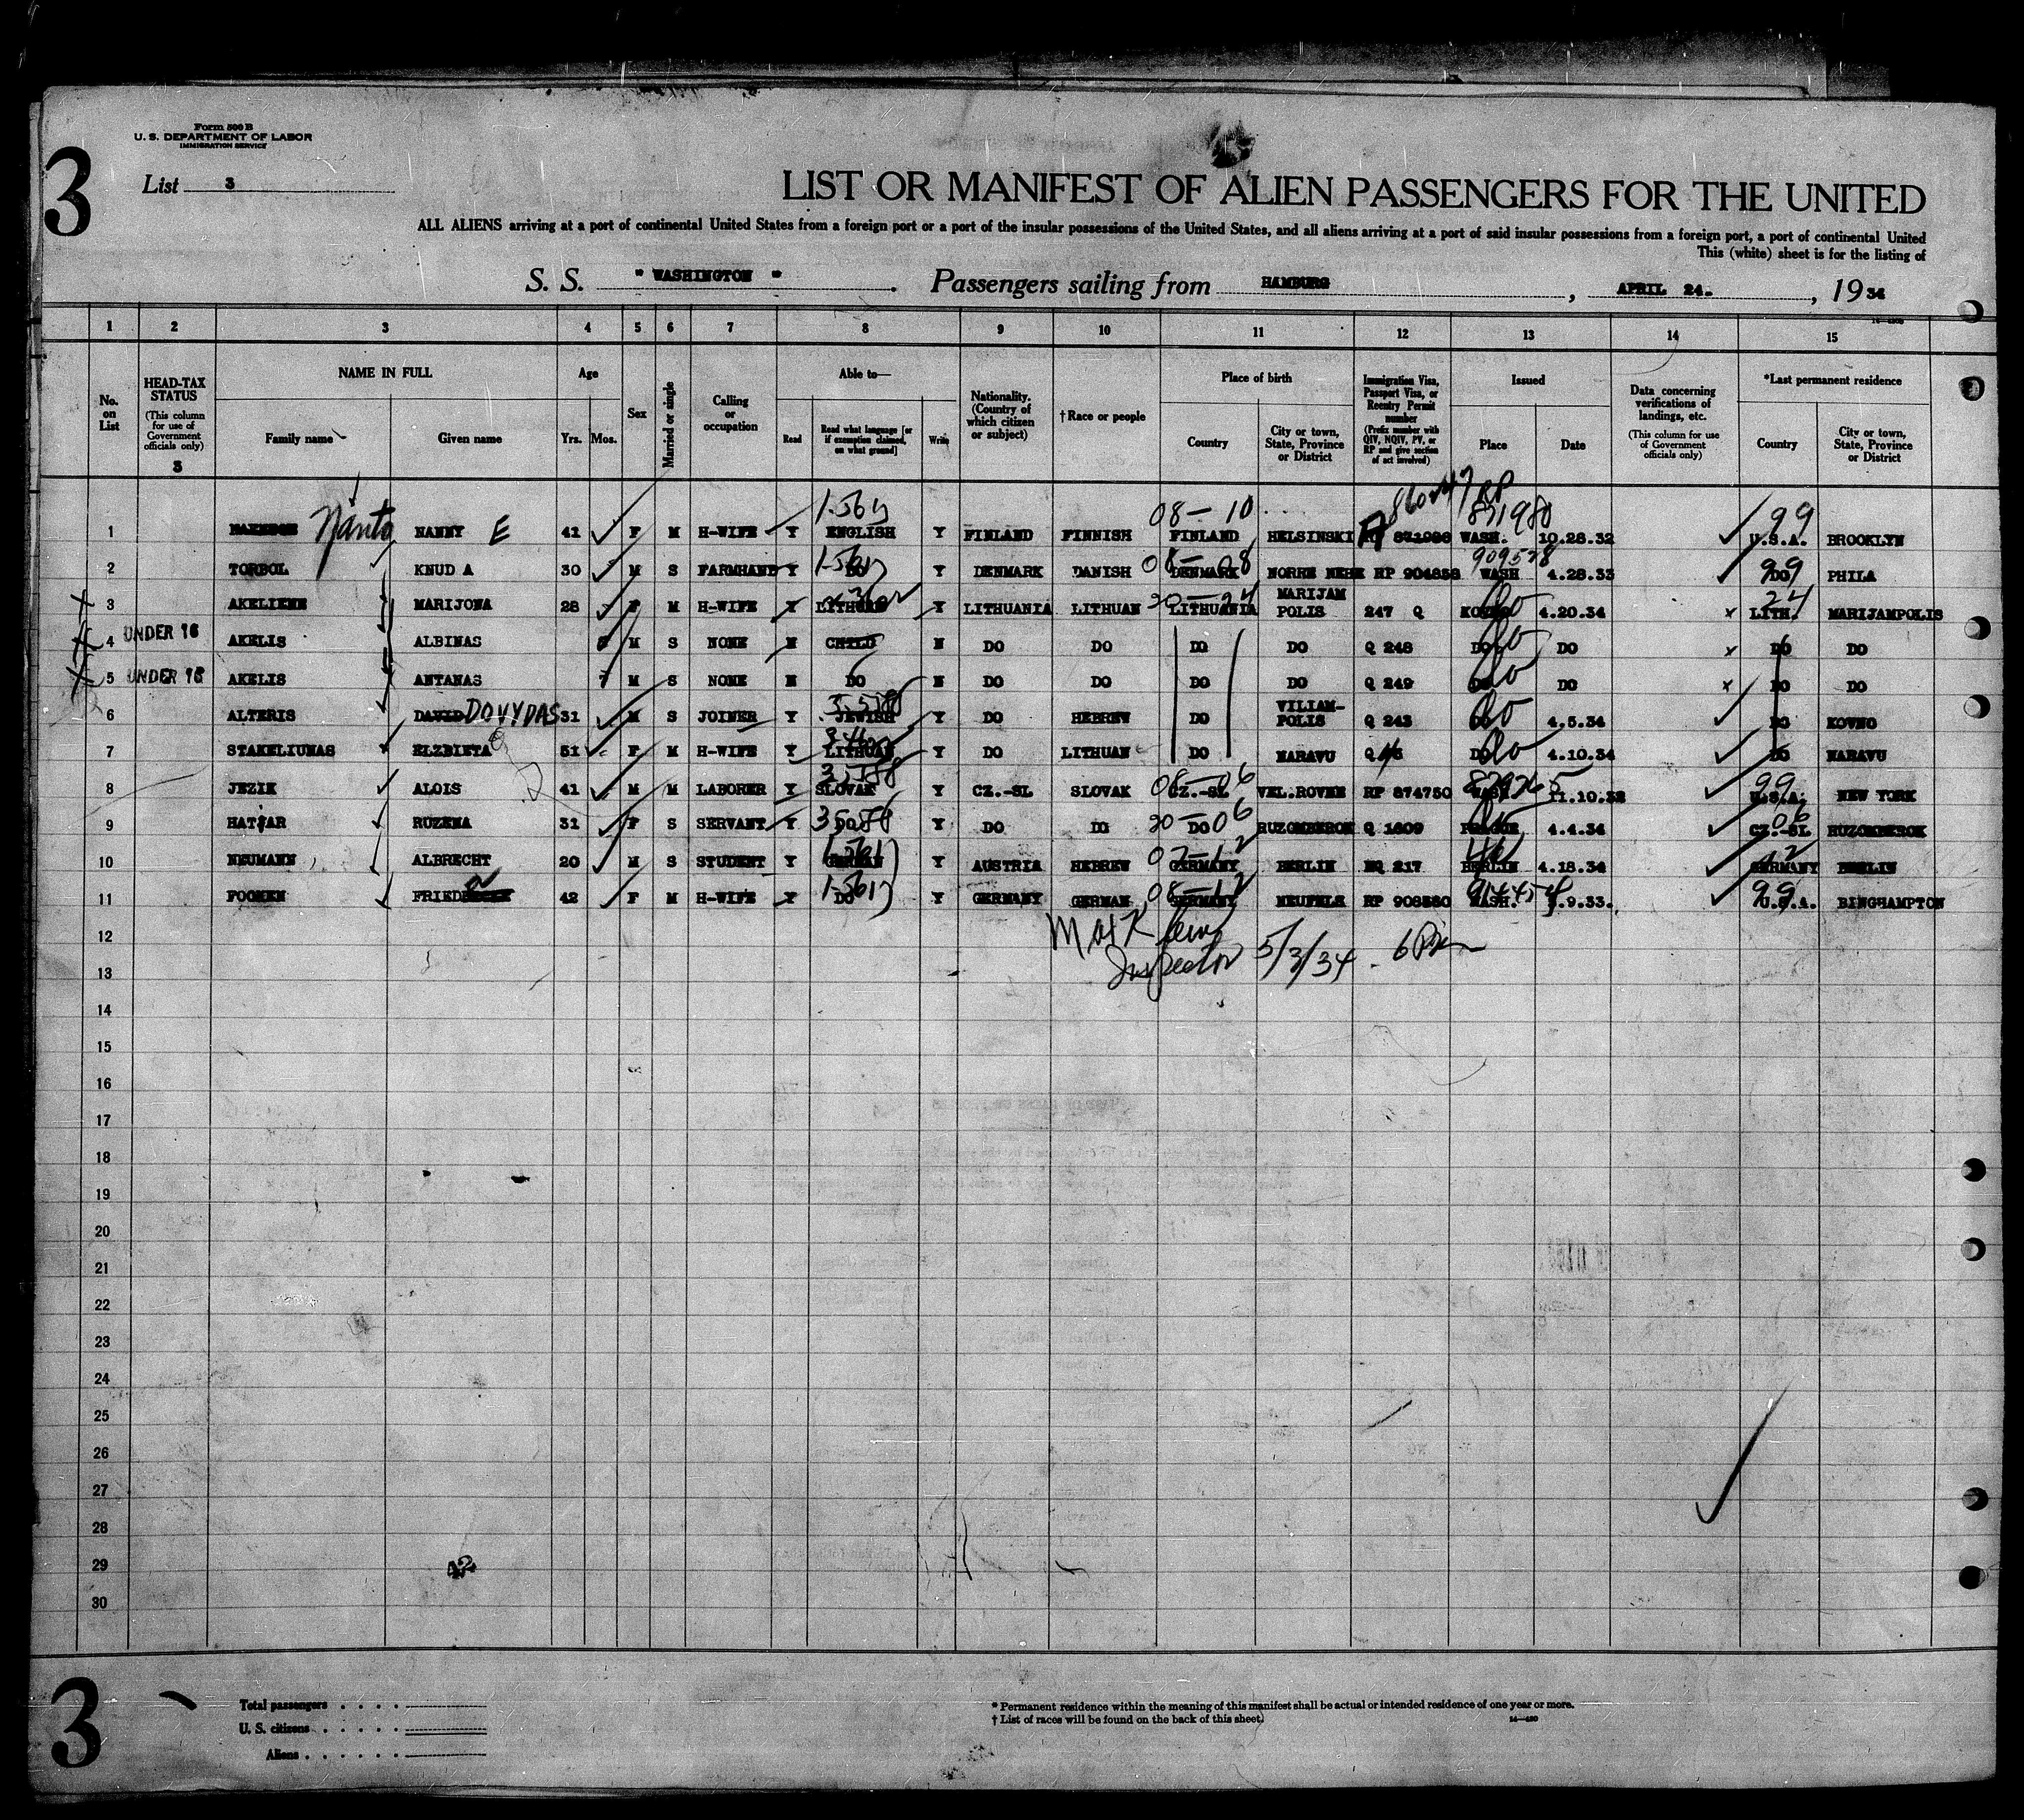 Form 500 B
U. S. DEPARTMENT OF LABOR
IMMIGRATION SERVICE
3
List 3
LIST OR MANIFEST OF ALIEN PASSENGERS FOR THE UNITED
ALL ALIENS arriving at a port of continental United States from a foreign port or a port of the insular possessions of the United States, and all aliens arriving at a port of said insular possessions from a foreign port, a port of continental United
This (white) sheet is for the listing of
S. S. " WASHINGTON " . Passengers sailing from HAMBURG , APRIL 24. , 1934
1 2 3 4 5 6 7 8 9 10 11 12 13 14 15
No. on List
HEAD-TAX STATUS
(This column for use of Government officials only)
3
NAME IN FULL
Family name
Given name
Age
Yrs. Mos.
Sex
Married or single
Calling or occupation
Able to—
Read
Read what language [or if exemption claimed, on what ground]
Write
Nationality. (Country of which citizen or subject)
†Race or people
Place of birth
Country
City or town, State, Province or District
Immigration Visa, Passport Visa, or Reentry Permit number
(Prefix number with QIV, NQIV, PV, or RP and give section of act involved)
Issued
Place
Date
Data concerning verifications of landings, etc.
(This column for use of Government officials only)
*Last permanent residence
Country
City or town, State, Province or District
1 NANNY E 41 F M H-WIFE Y ENGLISH Y FINLAND FINNISH 08-10 FINLAND HELSINSKI 871980 WASH. 10.28.32 99 U.S.A. BROOKLYN
2 TORBOL KNUD A 30 M S FARMHAND Y DO Y DENMARK DANISH 08-08 DENMARK RP 904858 909528 WASH 4.28.33 99 DO PHILA
3 AKELIENE MARIJONA 28 F M H-WIFE Y LITHUAN Y LITHUANIA LITHUAN 20-24 LITHUANIA MARIJAM POLIS 247 Q 4.20.34 x 24 LITH. MARIJAMPOLIS
4 UNDER 16 AKELIS ALBINAS M S NONE N CHILD N DO DO DO DO Q 248 DO DO x DO DO
5 UNDER 16 AKELIS ANTANAS 7 M S NONE N DO N DO DO DO DO Q 249 DO DO x DO DO
6 ALTERIS DAVID DOVYDAS 31 M S JOINER Y JEWISH Y DO HEBREW DO VILIAM- POLIS Q 243 DO 4.5.34 DO KOVNO
7 STAKELIUNAS ELZBIETA 51 F M H-WIFE Y LITHUAN Y DO LITHUAN DO NARAVU DO 4.10.34 DO NARAVU
8 JEZIK ALOIS 41 M M LABORER Y SLOVAK Y CZ.-SL SLOVAK 08-06 CZ.-SL VEL.ROVNE RP 874750 WASH 11.10.32 99 U.S.A. NEW YORK
9 RUZENA 31 F S SERVANT Y DO Y DO DO 20-06 DO RUZOMBEROK Q 1609 PRAGUE 4.4.34 06 CZ.-SL RUZOMBEROK
10 NEUMANN ALBRECHT 20 M S STUDENT Y GERMAN Y AUSTRIA HEBREW GERMANY BERLIN NQ 217 BERLIN 4.18.34 12 GERMANY BERLIN
11 FOOKEN 42 F M H-WIFE Y DO Y GERMANY GERMAN 08-12 GERMANY NEUFELS 914454 WASH. 9.33. 99 U.S.A. BINGHAMPTON
12 Inspector 5/3/34
13
14
15
16
17
18
19
20
21
22
23
24
25
26
27
28
29 42
30
3
Total passengers
U. S. citizens
Aliens
* Permanent residence within the meaning of this manifest shall be actual or intended residence of one year or more.
† List of races will be found on the back of this sheet.